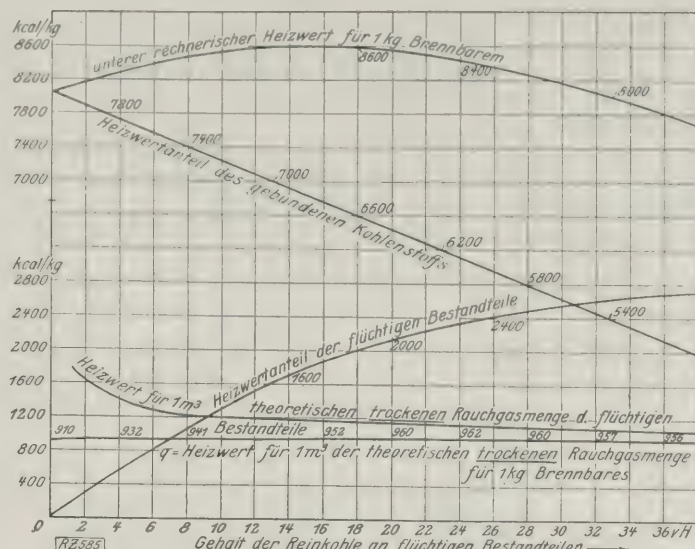 kcal/kg
8600
unterer rechnerischer Heizwert für 1 kg Brennbarem
8600
8400
8000
8200
7800
7800
7400
7400
7000
7000
6600
6200
5800
5400
Heizwertanteil des gebundenen Kohlenstoffs
kcal/kg
2800
2400
2000
1600
1200
800
400
Heizwertanteil der flüchtigen Bestandteile
1600
2000
2400
Heizwert für 1m³
theoretischen trockenen Rauchgasmenge d. flüchtigen
Bestandteile
910 932 941 952 960 962 960 957 956
q = Heizwert für 1m³ der theoretischen trockenen Rauchgasmenge
für 1kg Brennbares
0 2 4 6 8 10 12 14 16 18 20 22 24 26 28 30 32 34 36 vH
RZ585
Gehalt der Reinkohle an flüchtigen Bestandteilen